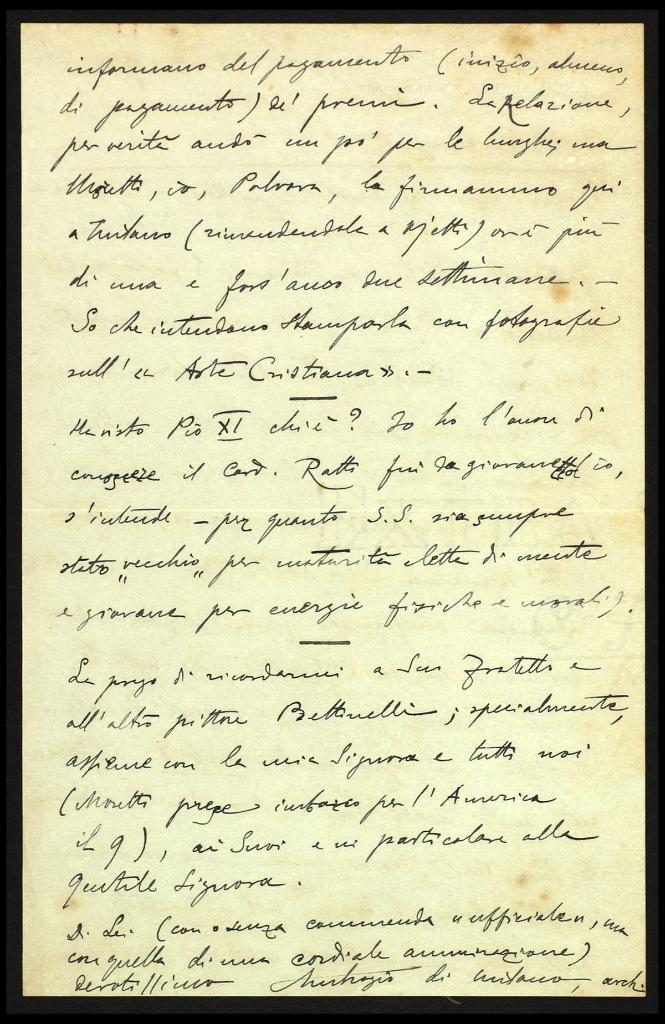 informano del pagamento (inizio, almeno,
di pagamento) de' premi. La Relazione,
per verità andò un po' per le lunghe; ma
Moretti, io, Palvara, la firmammo qui
a Milano (rimandandola a Ojetti) or è più
di una e fors'anco due settimane. –
So che intendono stamparla con fotografie
sull' « Arte Cristiana ». –
Ha visto Pio XI chi è? Io ho l'onore di
conoscere il Card. Ratti fin da giovane (io,
s'intende – per quanto S. S. sia sempre
stato "vecchio" per maturità eletta di mente
e giovane per energie fisiche e morali).
La prego di ricordarmi a Suo Fratello e
all'altro pittore Bettinelli; specialmente,
assieme con la mia Signora e tutti noi
(Moretti prese imbarco per l'America
il 9), ai Suoi e in particolare alla
gentile Signora.
Di Lei (con o senza commenda "ufficiale", ma
con quella di una cordiale ammirazione)
devotissimo Ambrogio di Milano, arch.